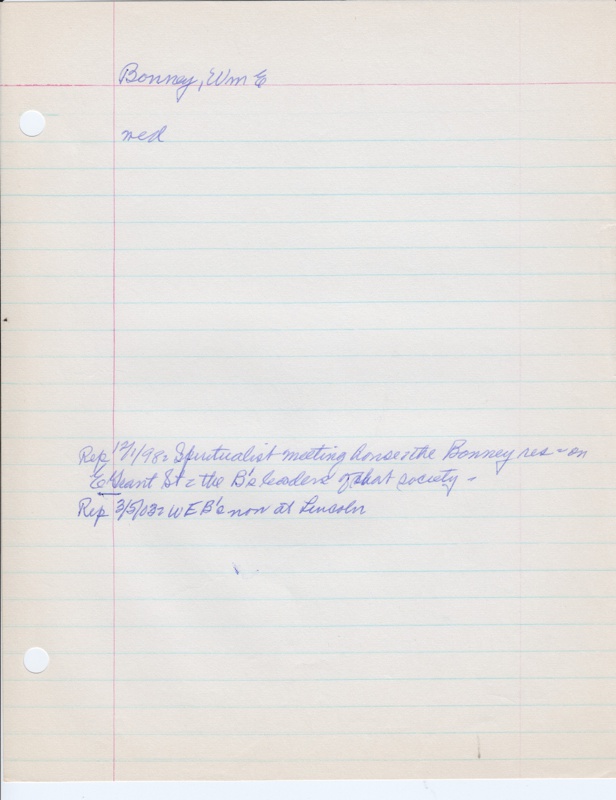 Bonney, Wm E
med
Rep 12/1/98 = Spiritualist meeting house = the Bonney res - on
E Grant St = the B's leaders of that society -
Rep 3/5/03 = W E B's now at Lincoln